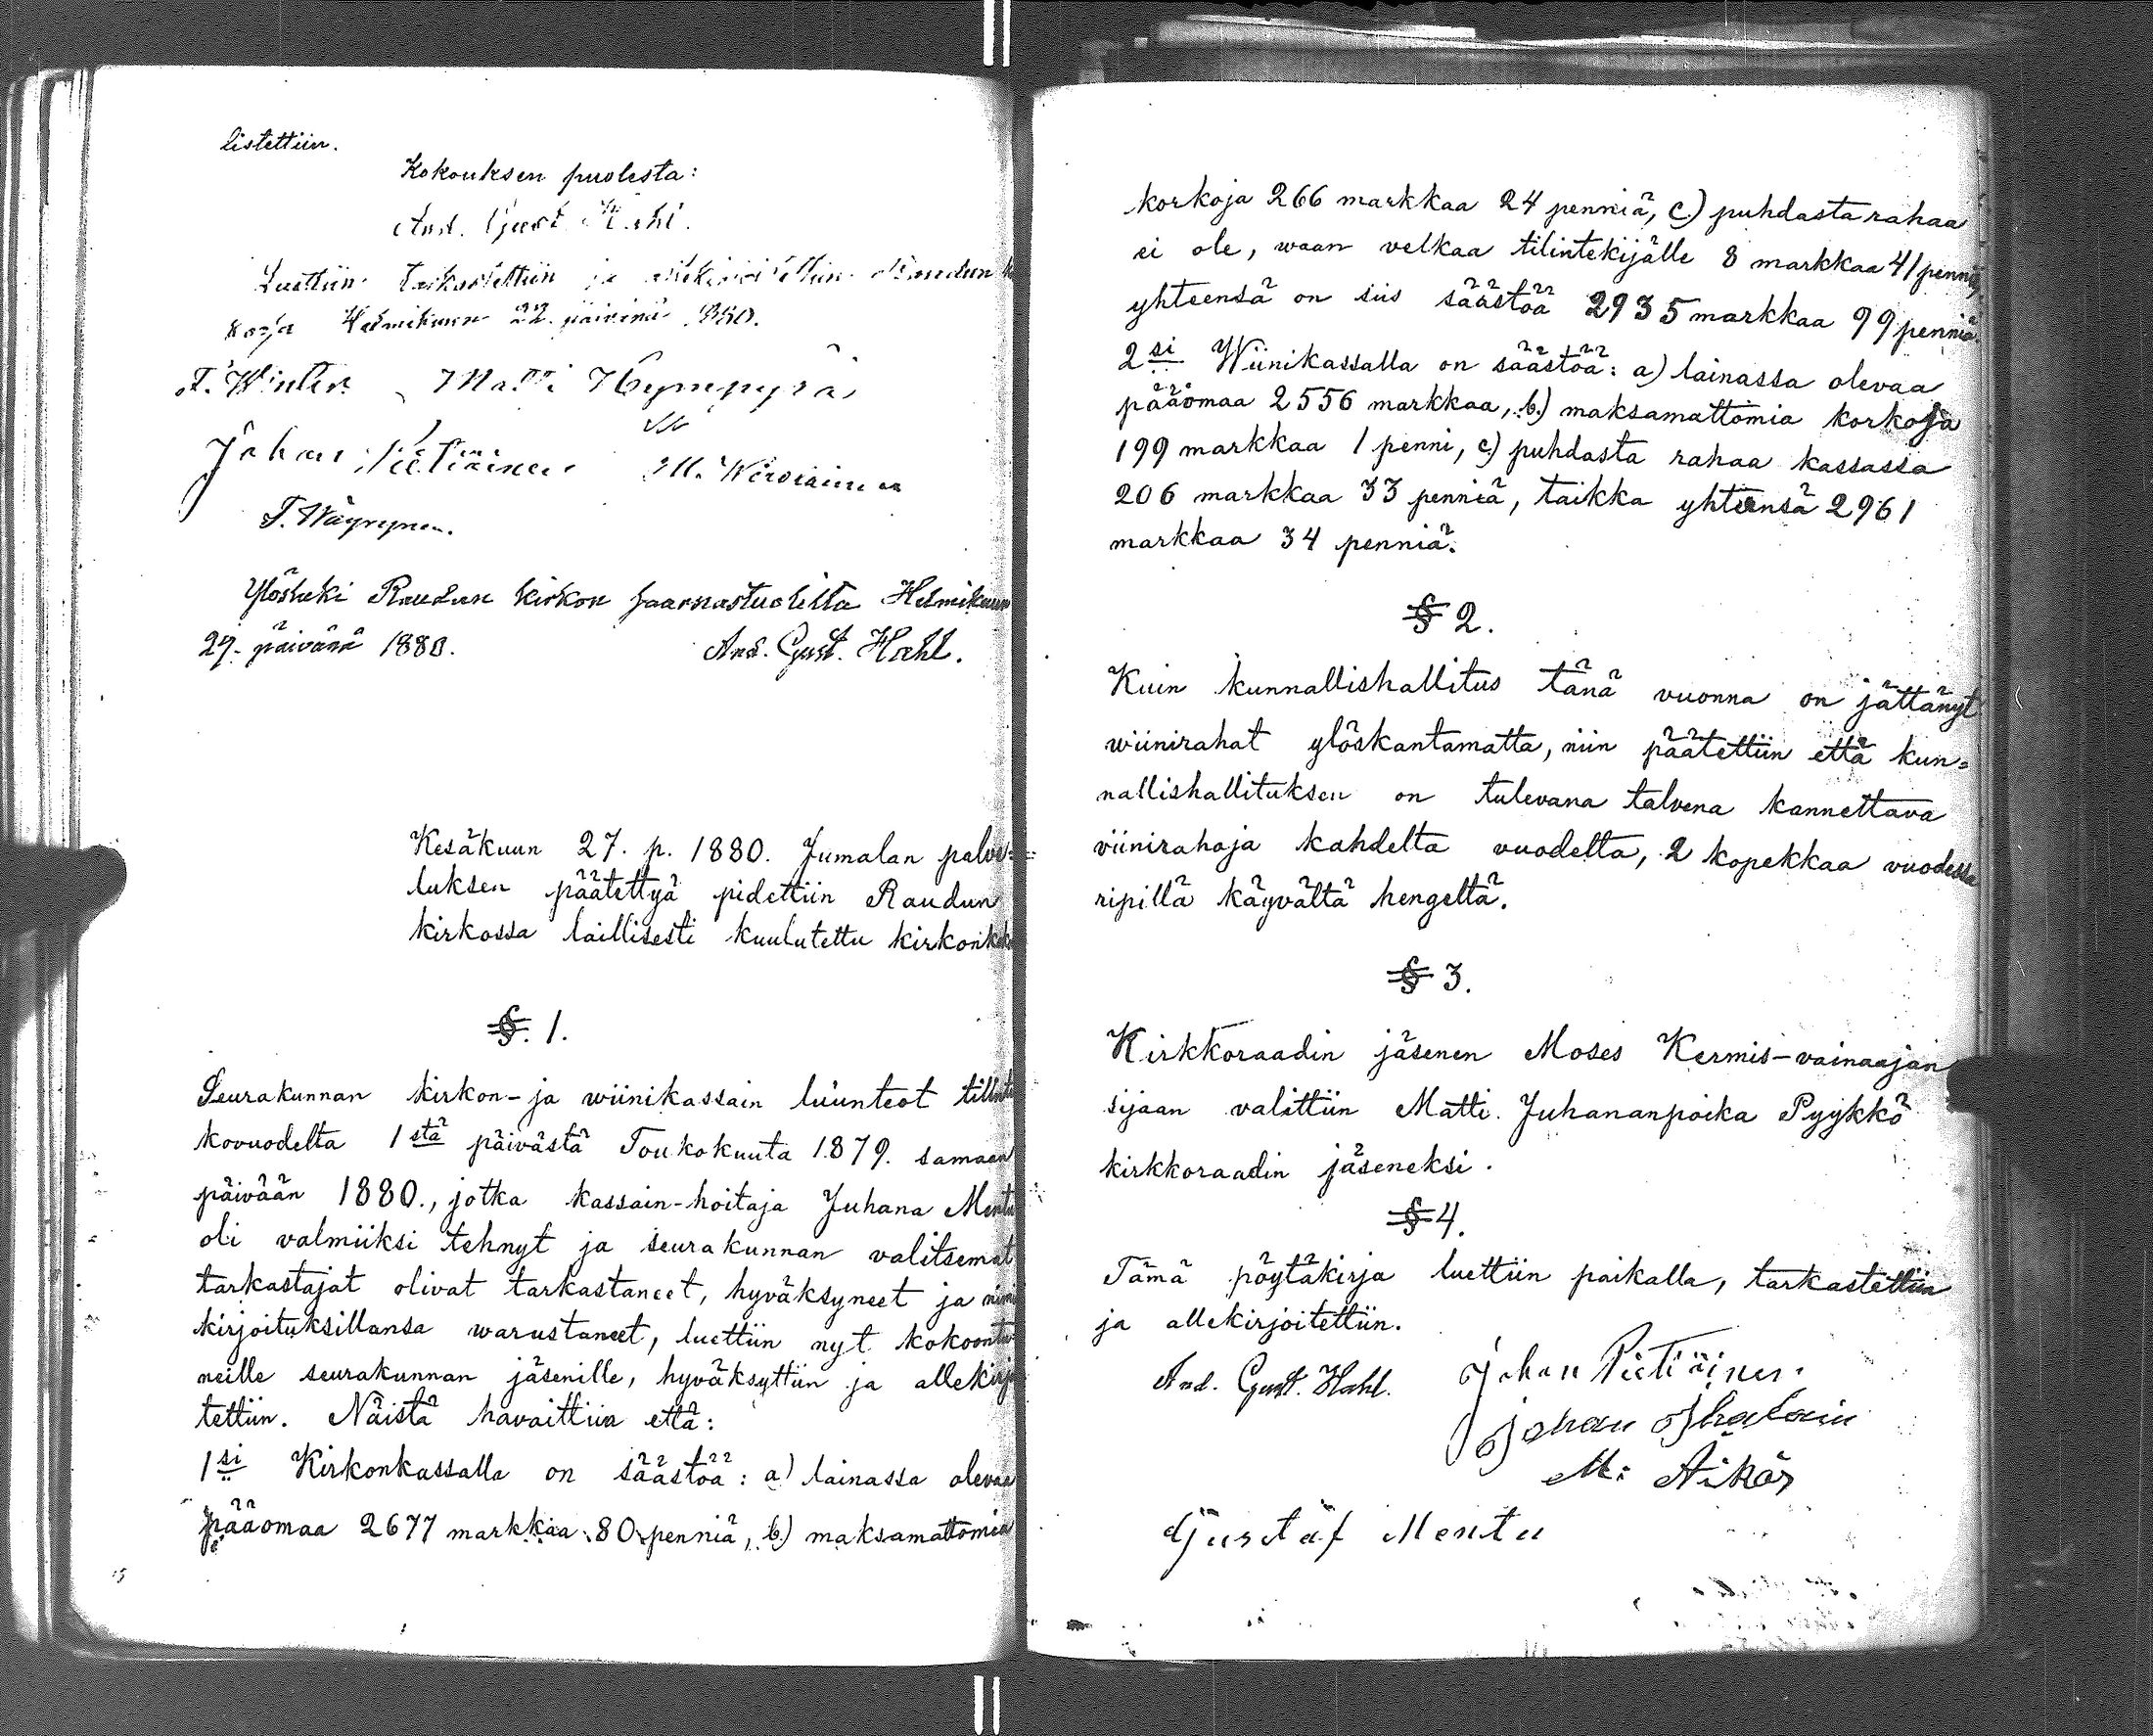 listettiin.
Kokouksen puolesta:
And. Gust. Hahl.
Luettiin tarkastettiin ja allekirjoitettiin Raudun
Helmikuun 22. päivänä 1880.
Matti Hympyrä
Johan Pietiäinen M. Wiroiainen
T. Wäyrynen.
Ylösluki Raudun kirkon saarnastuolilta Helmikuun
29. päivänä 1880. And. Gust. Hahl.
Kesäkuun 27. p. 1880. Jumalan palve-
luksen päätettyä pidettiin Raudun
kirkossa laillisesti kuulutettu
§. 1.
Seurakunnan kirkon- ja wiinikassain luunteot
kovuodelta 1stä päivästä Toukokuuta 1879. samaan
päivään 1880., jotka kassain-hoitaja Juhana Mentu
oli valmiiksi tehnyt ja seurakunnan valitsemat
tarkastajat olivat tarkastaneet, hyväksyneet ja nimi
kirjoituksillansa warustaneet, luettiin nyt kokoontu
neille seurakunnan jäsenille, hyväksyttiin ja allekirjoi
tettiin. Näistä havaittiin että:
1si Kirkonkassalla on säästöä: a) lainassa olevaa
pääomaa 2677 markkaa 80 penniä, b.) maksamattomia
korkoja 266 markkaa 24 penniä, c.) puhdasta rahaa
ei ole, waan velkaa tilintekijälle 8 markkaa 41 penniä,
yhteensä on siis säästöä 2935 markkaa 99 penniä.
2si Wiinikassalla on säästöä: a) lainassa olevaa
pääomaa 2556 markkaa, b.) maksamattomia korkoja
199 markkaa 1 penni, c.) puhdasta rahaa kassassa
206 markkaa 33 penniä, taikka yhteensä 2961
markkaa 34 penniä.
§ 2.
Kuin kunnallishallitus tänä vuonna on jättänyt
wiinirahat ylöskantamatta, niin päätettiin että kun=
nallishallituksen on tulevana talvena kannettava
viinirahoja kahdelta vuodelta, 2 kopekkaa vuodessa
ripillä käyvältä hengeltä.
§ 3.
Kirkkoraadin jäsenen Moses Kermis-vainaajan
sijaan valittiin Matti Juhananpoika Pyykkö
kirkkoraadin jäseneksi.
§ 4.
Tämä pöytäkirja luettiin paikalla, tarkastettiin
ja allekirjoitettiin.
And. Gust. Hahl. Johan Pietiäinen.
Johan Ihalain
M: Aikäs
Gustaf Mentu